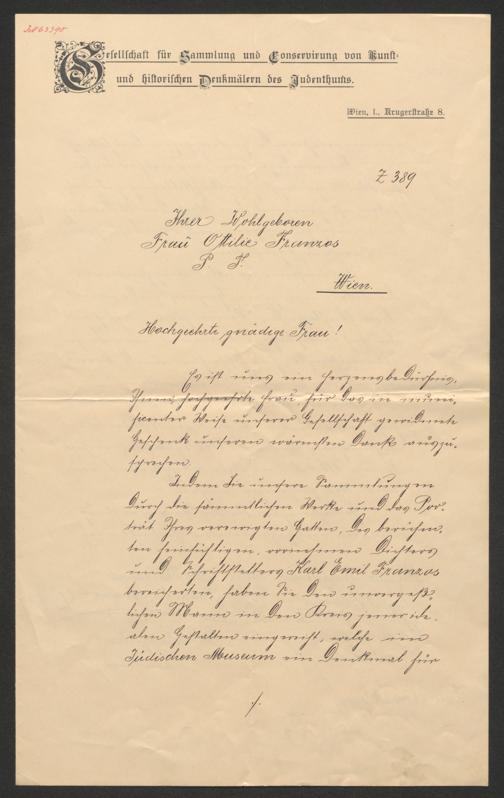 Gesellschaft für Sammlung und Conservirung von Kunst-
und historischen Denkmälern des Judenthums.
Wien, I., Krugerstraße 8.
Z 389
Ihrer Wohlgeboren
Frau Ottilie Franzos
P. T.
Wien.
Hochgeehrte gnädige Frau!
Es ist uns ein Herzensbedürfnis,
Ihnen, hochgeehrte Frau, für das in munifi-
zenter Weise unserer Gesellschaft gewidmete
Geschenk unseren wärmsten Dank auszu-
sprechen.
Indem Sie unsere Sammlungen
durch die sämmtlichen Werke und das Por-
trät Ihres verewigten Gatten, des berühm-
ten feinsichtigen, vornehmen Dichters
und Schriftstellers Karl Emil Franzos
bereicherten, haben Sie den unvergeß-
lichen Mann in den Kreis jener ide-
alen Gestalten eingereiht, welche im
Jüdischen Museum ein Denkmal für
./.